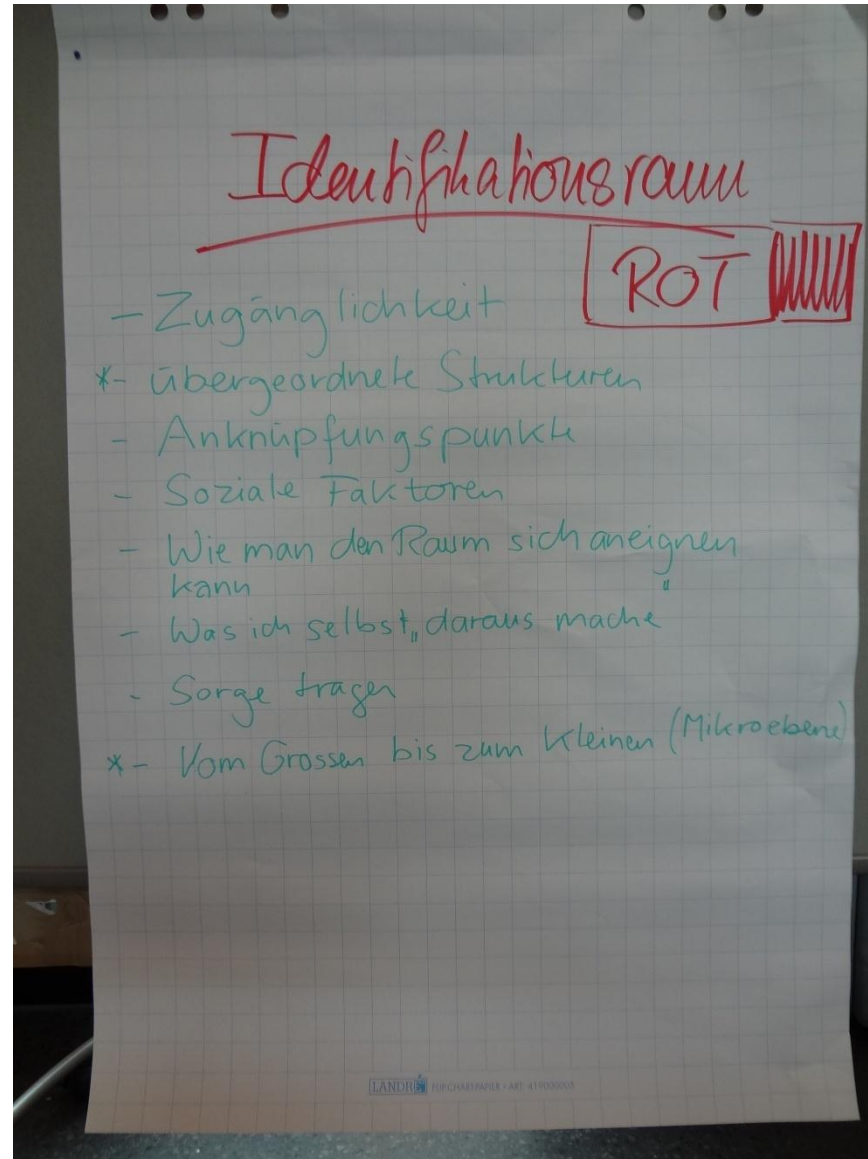 Identifikationsraum
ROT
- Zugänglichkeit
*- übergeordnete Strukturen
- Anknüpfungspunkte
- Soziale Faktoren
- Wie man den Raum sich aneignen
kann
- Was ich selbst „daraus mache"
- Sorge tragen
*- Vom Grossen bis zum Kleinen (Mikroebene)
LANDRÉ FLIPCHARTPAPIER • ART.